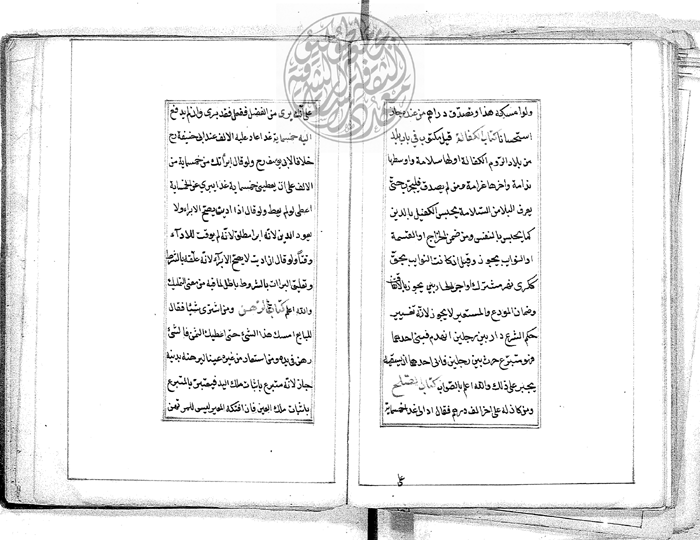 ولو امسك هذا وتصدق دراهم من عنده جاز
استحسانا كتاب الكفالة قيل مكتوب في باب بلد
من بلاد الروم الكفالة اولها سلامة واوسطها
ندامة واخرها غرامة ومن لم يصدق فليجرب حتى
يعرف البلا من السلامة يحبس الكفيل بالدين
كما يحبس بالنفس ومن ضمن الخراج او القسمة
او النواب يجوز وقيل ان كانت النواب بحق
ككرى نهر مشترك او اجرة يجوز بالاتفاق
وضمان المودع والمستعير لا يجوز لانه تغيير
حكم الشرع دار بين رجلين انهدم فبنى احدهما
بين رجلين فابى احدهما ان يسقيه
يجبر على ذلك والله اعلم بالصواب كتاب الصلح
ومن كان له على اخر الف درهم فقال اد الي غدا خمسماية
على
على انك بري من الفضل ففعل فقد بري وان لم يدفع
اليه خمسماية غدا عاد عليه الالف عند ابي حنيفة رح
خلافا لابي يوسف رح ولو قال ابرأتك من خمسماية من
الالف على ان يعطيني خمسماية غدا يبري عن الخمسماية
اعطى او لم يعط ولو قال اذا اديت يصح الابراء ولا
يعود الدين لانه ابرا مطلق لانه لم يوقت للادآء
وقتا ولو قال ان اديت لا يصح الابرآء لانه علقه بالشرط
وتعليق البرات بالشروط باطل لما فيه من معنى التمليك
والله اعلم كتاب الرهن ومن اشترى شيئا فقال
للبايع امسك هذا الشئ حتى اعطيك الثمن فالشئ
رهن في يده ومن استعار من غيره عينا ليرهنه بدينه
جاز لانه متبرع باثبات ملك اليد فيعتبر بالمتبرع
باثبات ملك العين فان افتكه المعير ليس للمرتهن